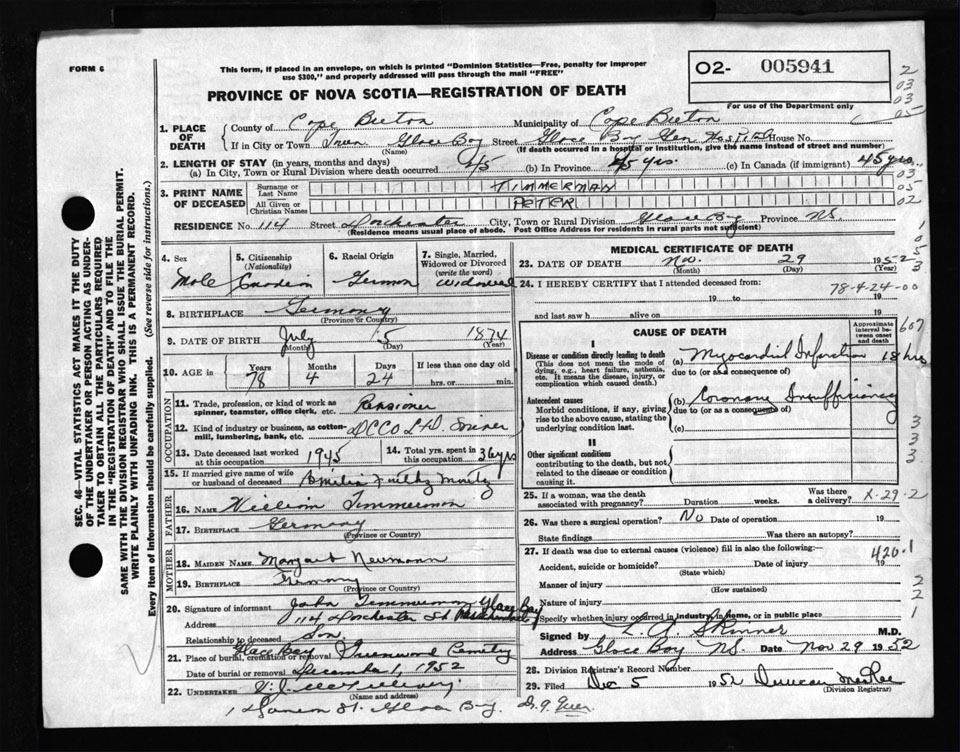 FORM 6
This form, if placed in an envelope, on which is printed "Dominion Statistics—Free, penalty for improper
use $300," and properly addressed will pass through the mail "FREE"
PROVINCE OF NOVA SCOTIA—REGISTRATION OF DEATH
O2- 005941
For use of the Department only
2
03
03
05
1. PLACE OF DEATH
County of Cape Breton Municipality of Cape Breton
If in City or Town Town Glace Bay Street Glace Bay Gen Hospital House No.
(Name) (If death occurred in a hospital or institution, give the name instead of street and number)
2. LENGTH OF STAY (in years, months and days)
(a) In City, Town or Rural Division where death occurred 45 (b) In Province 45 yrs. (c) In Canada (if immigrant) 45 yrs.
03
3. PRINT NAME OF DECEASED
Surname or Last Name TIMMERMAN
05
All Given or Christian Names PETER
02
RESIDENCE No. 114 Street Dorchester City, Town or Rural Division Glace Bay Province N.S.
(Residence means usual place of abode. Post Office Address for residents in rural parts not sufficient)
SEC. 46—VITAL STATISTICS ACT MAKES IT THE DUTY
OF THE UNDERTAKER OR PERSON ACTING AS UNDER-
TAKER TO OBTAIN ALL THE PARTICULARS REQUIRED
IN THE "REGISTRATION OF DEATH" AND TO FILE THE
SAME WITH THE DIVISION REGISTRAR WHO SHALL ISSUE THE BURIAL PERMIT.
WRITE PLAINLY WITH UNFADING INK. THIS IS A PERMANENT RECORD.
Every item of information should be carefully supplied. (See reverse side for instructions.)
4. Sex Male
5. Citizenship (Nationality) Canadian
6. Racial Origin German
7. Single, Married, Widowed or Divorced (write the word) Widowed
8. BIRTHPLACE Germany
(Province or Country)
9. DATE OF BIRTH July 5 1874
(Month) (Day) (Year)
10. AGE in Years 78 Months 4 Days 24 If less than one day old
hrs. or min.
OCCUPATION
11. Trade, profession, or kind of work as spinner, teamster, office clerk, etc. Pensioner
12. Kind of industry or business, as cotton-mill, lumbering, bank, etc. DCCO Ltd. Miner
13. Date deceased last worked at this occupation 1945
14. Total yrs. spent in this occupation 36 yrs
15. If married give name of wife or husband of deceased Amelia Moritz
FATHER
16. NAME William Timmerman
17. BIRTHPLACE Germany
(Province or Country)
MOTHER
18. MAIDEN NAME Margaret Neumann
19. BIRTHPLACE Germany
(Province or Country)
20. Signature of informant John Timmerman
Address 114 Dorchester St Glace Bay
Relationship to deceased Son
21. Place of burial, cremation or removal Glace Bay Greenwood Cemetery
Date of burial or removal December 1, 1952
22. UNDERTAKER
(Name and address)
St. Glace Bay.
MEDICAL CERTIFICATE OF DEATH
23. DATE OF DEATH Nov. 29 1952
(Month) (Day) (Year)
1
0
5
3
24. I HEREBY CERTIFY that I attended deceased from:
78-4-24-00
19 to 19
and last saw h alive on 19
CAUSE OF DEATH
Approximate interval between onset and death
607
I
Disease or condition directly leading to death
(This does not mean the mode of dying, e.g., heart failure, asthenia, etc. It means the disease, injury, or complication which caused death.)
(a) Myocardial Infarction 18 hrs
due to (or as a consequence of)
Antecedent causes
Morbid conditions, if any, giving rise to the above cause, stating the underlying condition last.
(b) Coronary Insufficiency
due to (or as a consequence of)
(c)
II
Other significant conditions
contributing to the death, but not related to the disease or condition causing it.
3
3
3
25. If a woman, was the death associated with pregnancy? Duration weeks. Was there a delivery?
X-29-2
26. Was there a surgical operation? No Date of operation 19
State findings Was there an autopsy?
27. If death was due to external causes (violence) fill in also the following:—
420.1
Accident, suicide or homicide? Date of injury 19
(State which)
Manner of injury
(How sustained)
Nature of injury
Specify whether injury occurred in industry, in home, or in public place
2
2
1
Signed by Skinner M.D.
Address Glace Bay N.S. Date Nov 29 1952
28. Division Registrar's Record Number
29. Filed Dec 5 1952 Duncan
(Division Registrar)